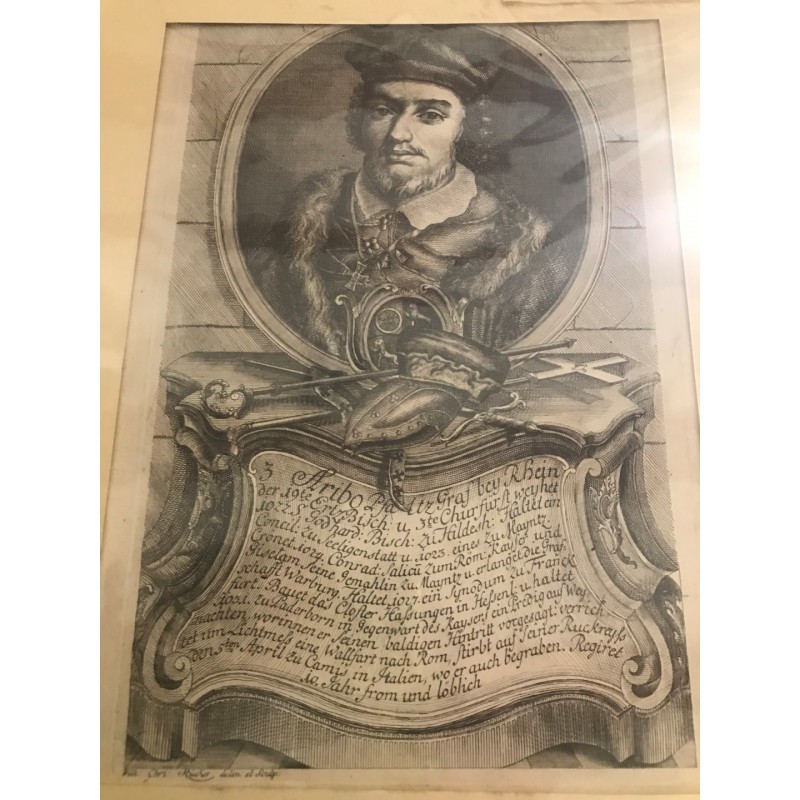 3 Aribo Pfaltz Graf bey Rhein
der 19te Ertz-Bisch: u. 3te Churfürst weyhet
1022 S. Godhard: Bisch: zu Hildesh: Haltet ein
Concil: zu Seeligenstatt u. 1023. eines zu Mayntz
Crönet 1024. Conrad: Salicũ zum Röm: Kayser und
Giselam seine Gemahlin zu Mayntz u. erlanget die Graf:
schafft Warburg. Haltet 1027. ein Synodum zu Franck
furt. Bauet das Closter Hasungen in Hessen: u. haltet
1031. zu Paderborn in Gegenwart des Kaysers ein Predig auf Wey
nachten, worinnen er seinen baldigen Hintritt vorgesagt: verrich
tet um Lichtmess eine Wallfart nach Rom, stirbt auf seiner Ruckreyss
den 5ten April zu Camis in Italien, wo er auch begraben. Regiret
10 Jahr from und löblich
Chri: delin et Sculp: